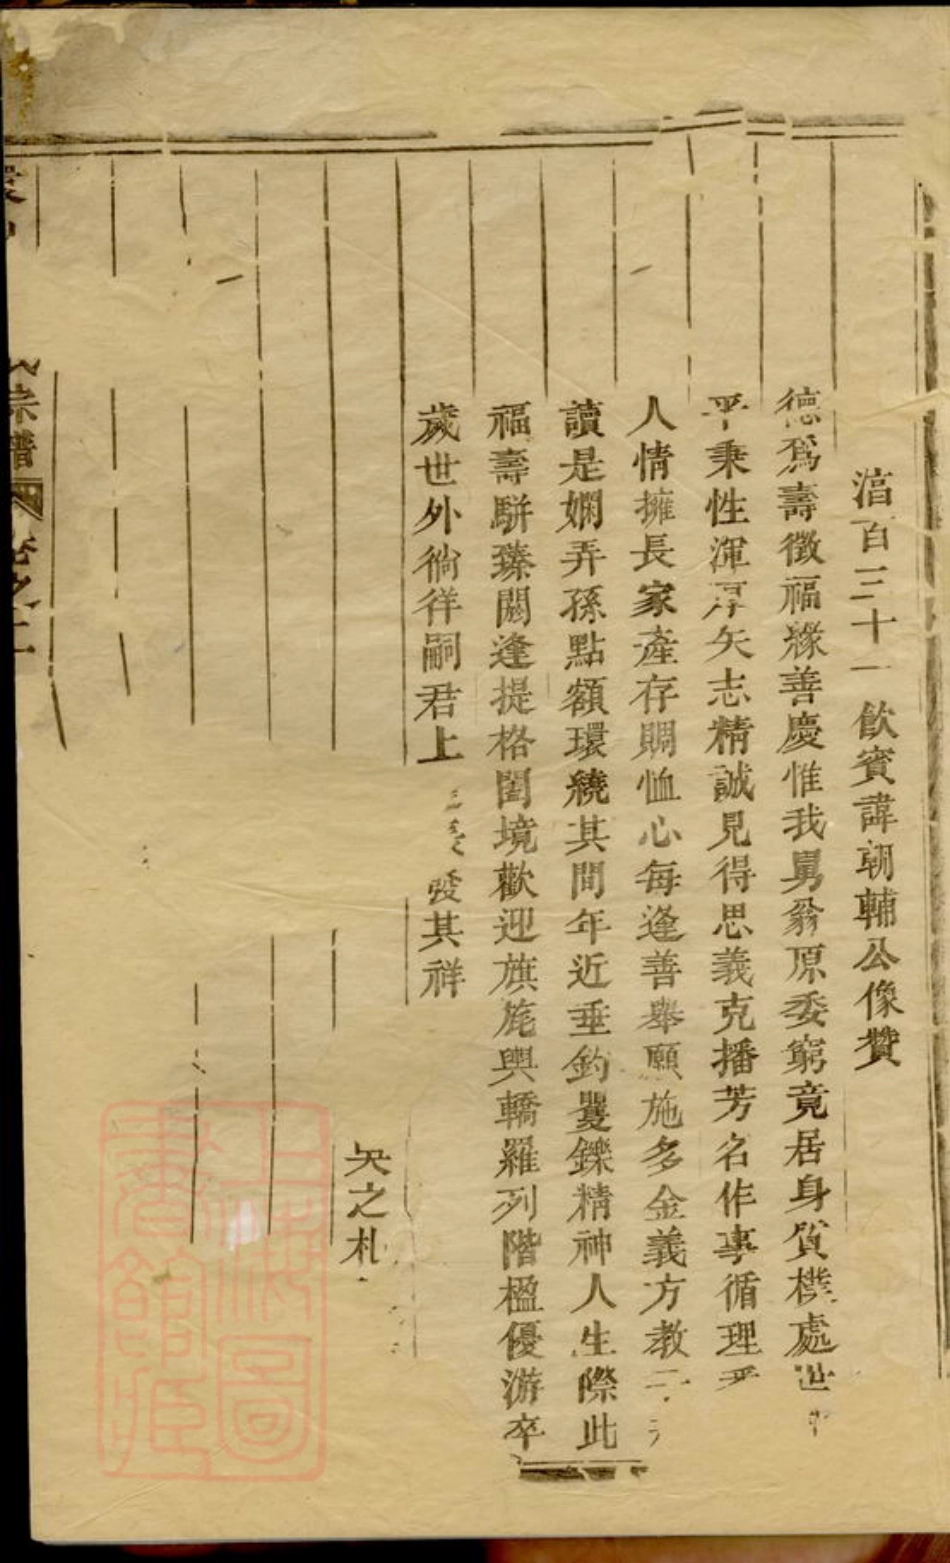 湻百三十一飲賓諱朝輔公像贊
德爲壽徵福緣善慶惟我舅翁原委窮竟居身質樸處世
平秉性渾厚矢志精誠見得思義克播芳名作事循理
人情擁長家產存賙恤心每逢善舉願施多金義方教
讀是嫻弄孫點額環繞其間年近垂釣矍鑠精神人生際此
福壽駢臻閼逢提格閤境歡迎旗旄輿轎羅列階楹優游卒
歲世外徜徉嗣君上
發其祥
矢之札
宗譜
卷之二
上海圖書館藏